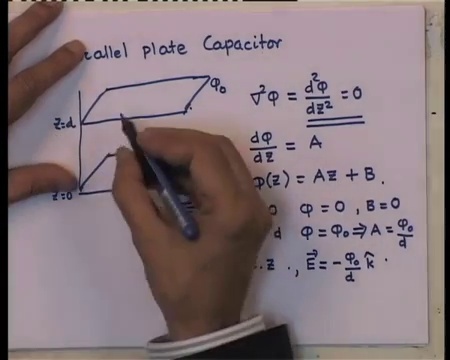 allel plate Capacitor
φ₀
z=d
z=0
∇²φ = d²φ/dz² = 0
dφ/dz = A
φ(z) = Az + B.
0 φ=0, B=0
d φ=φ₀ ⇒ A = φ₀/d
z ., E⃗ = -φ₀/d k̂.